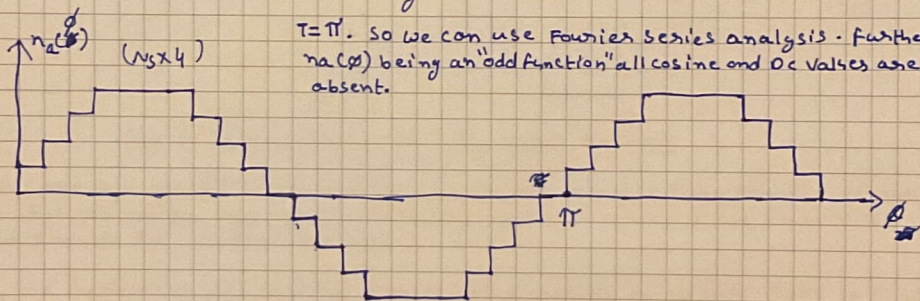 T=π. So we can use Fourier series analysis. Furthe
na(ϕ) being an "odd function" all cosine and DC values are
absent.
na(ϕ)
(Ns×4)
π
ϕ